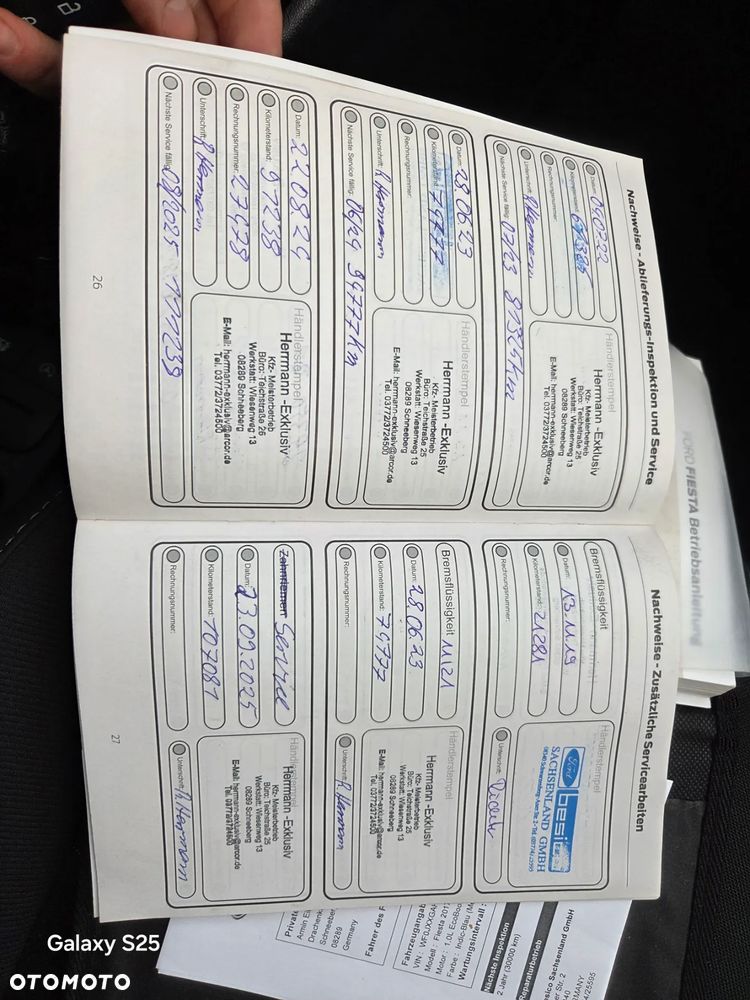 Nachweise - Ablieferungs-Inspektion und Service
Datum:
Kilometerstand:
Rechnungsnummer:
Unterschrift: R. Herrmann
Nächste Service fällig: 07/23 87325 km
Händlerstempel
Herrmann -Exklusiv
Kfz- Meisterbetrieb
Büro: Teichstraße 25
Werkstatt: Wiesenweg 13
08289 Schneeberg
E-Mail: herrmann-exklusiv@arcor.de
Tel. 03772/3724500
Datum: 28.06.23
Kilometerstand: 79777
Rechnungsnummer:
Unterschrift: R. Herrmann
Nächste Service fällig: 06/24 99777 km
Händlerstempel
Herrmann -Exklusiv
Kfz- Meisterbetrieb
Büro: Teichstraße 25
Werkstatt: Wiesenweg 13
08289 Schneeberg
E-Mail: herrmann-exklusiv@arcor.de
Tel. 03772/3724500
Datum: 22.08.24
Kilometerstand: 97238
Rechnungsnummer: 27478
Unterschrift: R. Herrmann
Nächste Service fällig: 08/2025
Händlerstempel
Herrmann -Exklusiv
Kfz- Meisterbetrieb
Büro: Teichstraße 26
Werkstatt: Wiesenweg 13
08289 Schneeberg
E-Mail: herrmann-exklusiv@arcor.de
Tel. 03772/3724500
26
Nachweise - Zusätzliche Servicearbeiten
Bremsflüssigkeit
Datum: 13.11.19
Kilometerstand: 21281
Rechnungsnummer:
Händlerstempel
Ford besico
SACHSENLAND GMBH
Unterschrift:
Bremsflüssigkeit 11/21
Datum: 28.06.23
Kilometerstand: 79777
Rechnungsnummer:
Händlerstempel
Herrmann -Exklusiv
Kfz- Meisterbetrieb
Büro: Teichstraße 25
Werkstatt: Wiesenweg 13
08289 Schneeberg
E-Mail: herrmann-exklusiv@arcor.de
Tel. 03772/3724500
Unterschrift: R. Herrmann
Zahnriemen Service
Datum: 23.09.2025
Kilometerstand: 107081
Rechnungsnummer:
Händlerstempel
Herrmann -Exklusiv
Kfz- Meisterbetrieb
Büro: Teichstraße 25
Werkstatt: Wiesenweg 13
08289 Schneeberg
E-Mail: herrmann-exklusiv@arcor.de
Unterschrift: R. Herrmann
27
FORD FIESTA Betriebsanleitung
Nächste Inspektion
2 Jahr (30000 km)
Reparaturbetrieb
08289
Germany
Galaxy S25
OTOMOTO